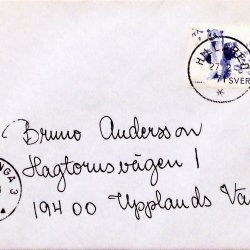 SVER
Bruno Andersson
Hagtornsvägen 1
194 00 Upplands Vä